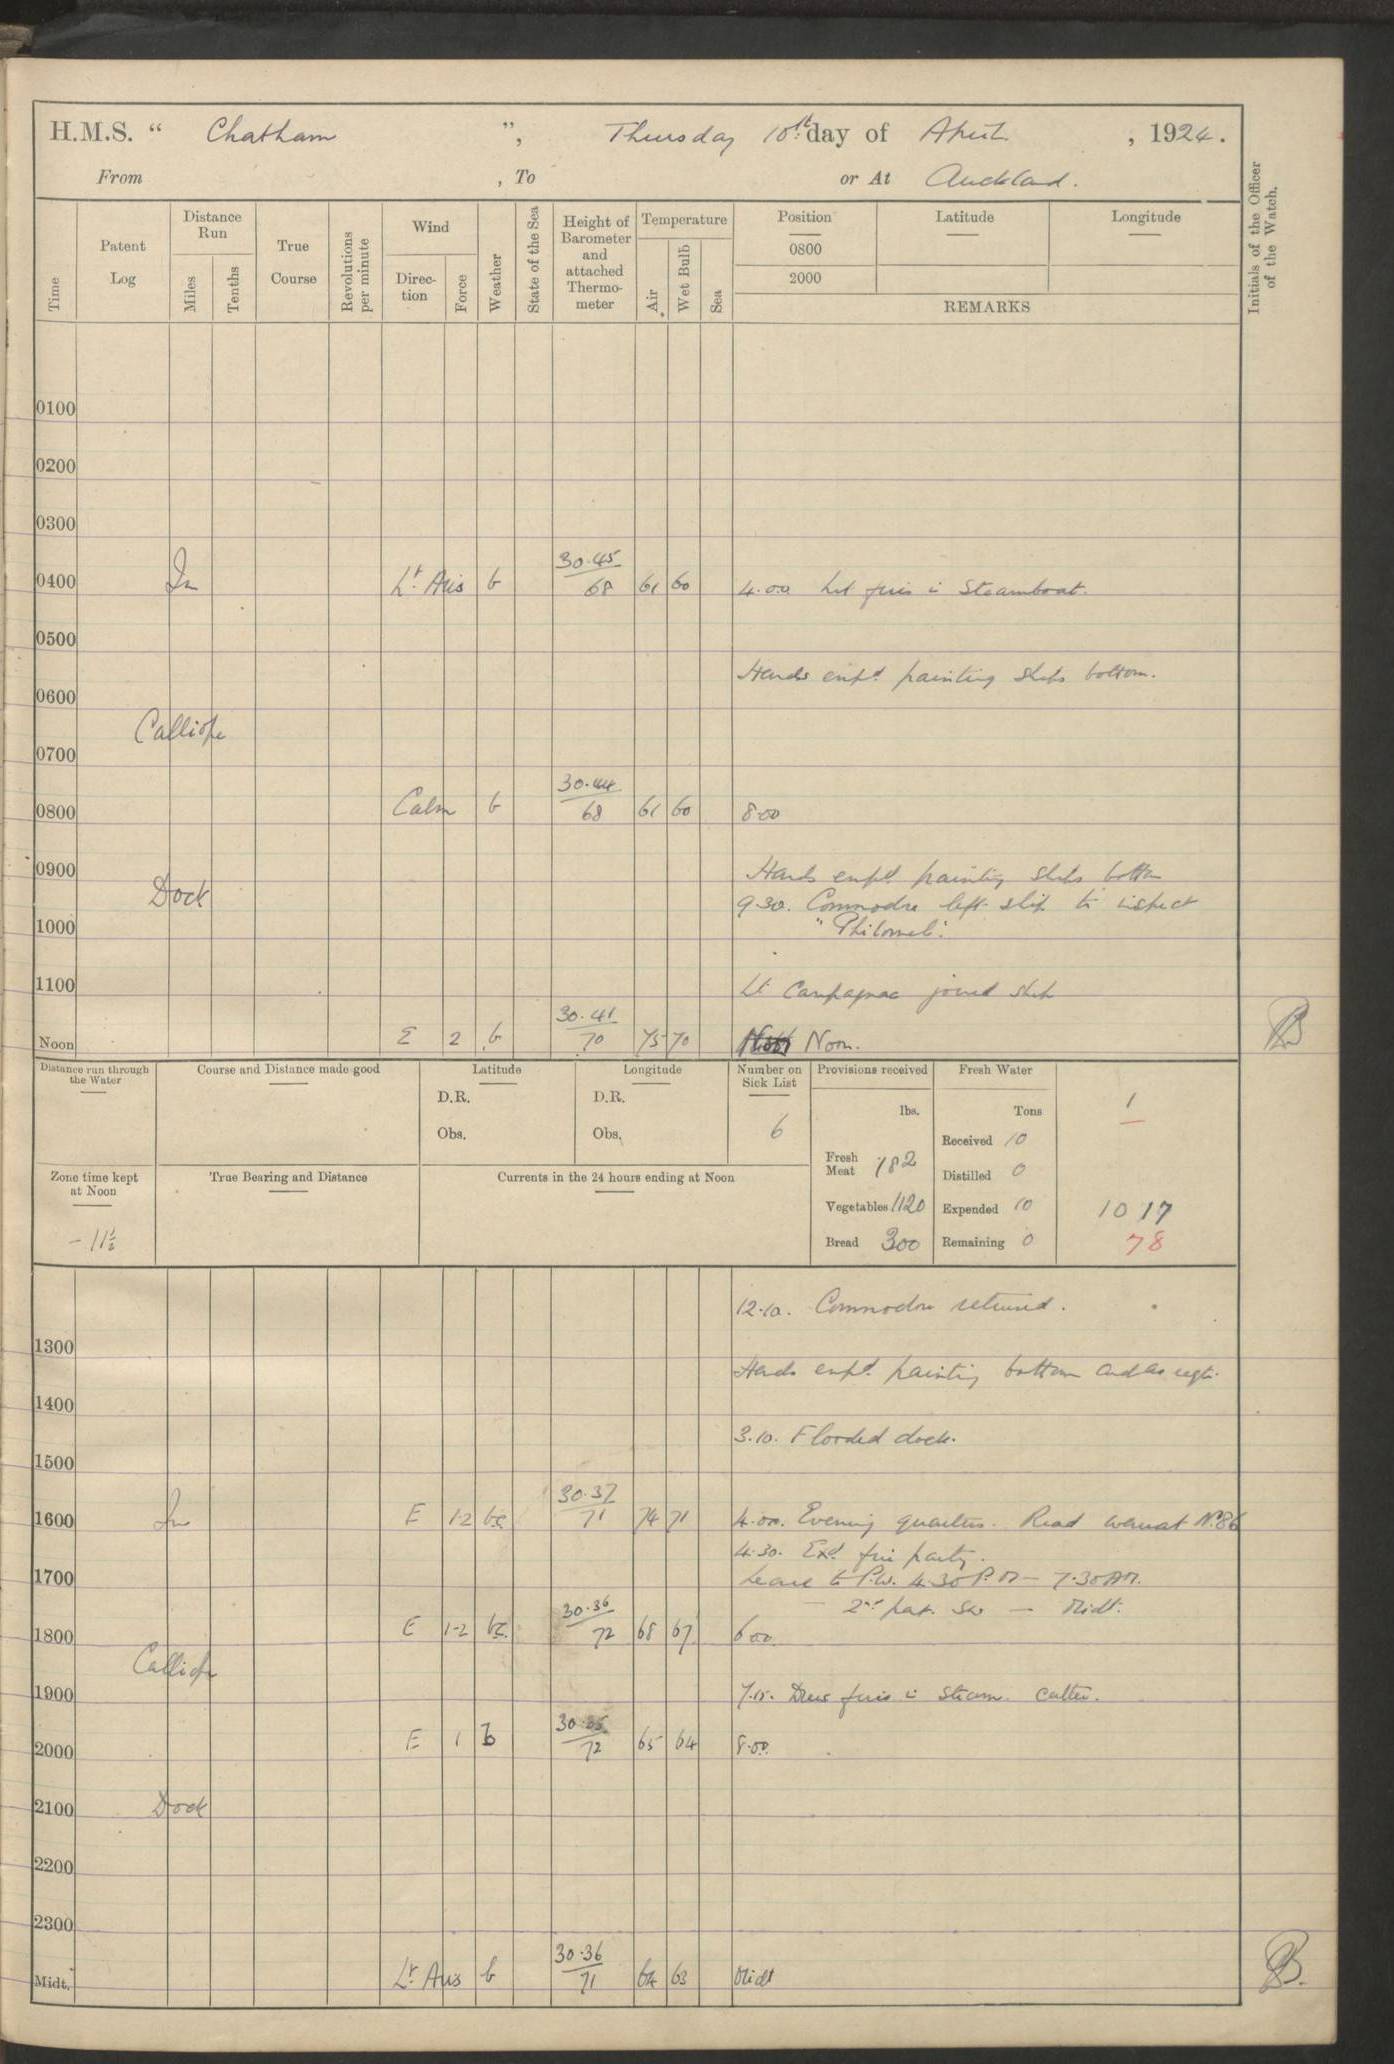 H.M.S. “ Chatham ”, Thursday 10th day of April , 1924.
From , To or At Auckland.
Time
Patent Log
Distance Run
Miles
Tenths
True Course
Revolutions per minute
Wind
Direction
Force
Weather
State of the Sea
Height of Barometer and attached Thermometer
Temperature
Air
Wet Bulb
Sea
Position
0800
2000
Latitude
Longitude
REMARKS
Initials of the Officer of the Watch.
0100
0200
0300
0400 In Lt. Airs b 30.45 68 61 60 4.00 Lit fires in Steamboat.
0500
Hands empd. painting ships bottom.
0600
Calliope
0700
0800 Calm b 30.44 68 61 60 8.00
0900 Hands empd. painting ships bottom
Dock 9.30. Commodore left ship to inspect
1000 "Philomel".
1100 Lt Campagnac joined ship
Noon E 2 b 30.41 70 75 70 Noon.
Distance run through the Water
Course and Distance made good
Latitude
D.R.
Obs.
Longitude
D.R.
Obs.
Number on Sick List
6
Provisions received
lbs.
Fresh Meat 782
Vegetables 1120
Bread 300
Fresh Water
Tons
Received 10
Distilled 0
Expended 10
Remaining 0
1
10 17
78
Zone time kept at Noon
- 11½
True Bearing and Distance
Currents in the 24 hours ending at Noon
12.10. Commodore returned.
1300
Hands empd. painting bottom and as reqte.
1400
3.10. Flooded dock.
1500
1600 In E 1-2 bc 30.37 71 74 71 4.00. Evening quarters. Read warrant No. 86
4.30. Exd. fire party.
1700 Leave to P.W. 4.30 P.M — 7.30 AM.
— 2nd part. Sw — Midt.
1800 E 1-2 bc 30.36 72 68 67 6.00
Calliope
1900 7.15. Drew fires in Steam cutter.
2000 E 1 b 30.35 72 65 64 8.00.
2100 Dock
2200
2300
Midt. Lt. Airs b 30.36 71 64 63 Midt